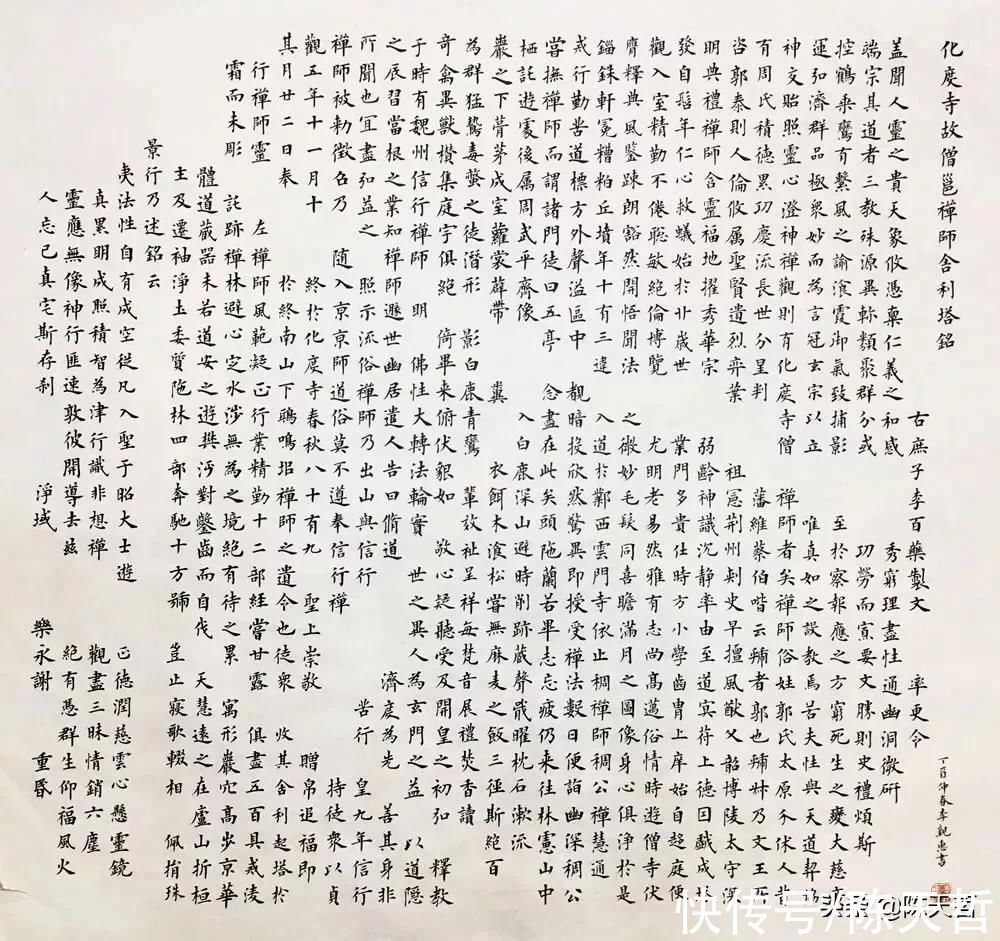 化度寺故僧邕禪師舍利塔銘
右庶子李百藥製文 率更令
蓋聞人靈之貴天象攸憑稟仁義之和感 秀窮理盡性通幽洞微研
端宗其道者三教殊源異軫類聚群分或 功勞而寔要文勝則史禮煩斯
控鶴乘鸞有繫風之諭飡霞御氣致捕影 至於察報應之方窮死生之變大慈
運弘濟群品極衆妙而為言冠玄宗以立 唯真如之設教焉若夫性與天道契協
神交貽照靈心澄神禪觀則有化度寺僧 禪師者矣禪師俗姓郭氏太原介休人昔
有周氏積德累功慶流長世分星判 藩維蔡伯喈云虢者郭也虢叔乃文王所
咨郭泰則人倫攸属聖賢遺烈弈葉 祖憲荆州刺史早擅風猷父韶博陵太守深
明典禮禪師含靈福地擢秀華宗 弱齡神識沉静率由至道冥苻上德因戲成塔
發自髫年仁心救蟻始於廿歲世 業門多貴仕時方小學齒胄上庠始自超庭便
觀入室精勤不倦聡敏絕倫博覽 尤明老易然雅有志尚高邁俗情時遊僧寺伏
膺釋典風鑒踈朗豁然開悟聞法 之微妙毛髮同喜瞻滿月之圖像身心俱浄於是
錙銖軒冕糟粕丘墳年十有三違 入道於鄴西雲門寺依止稠禪師稠公禪慧通
戒行勤苦道標方外聲溢區中 覩暗投欣然驚異即授受禪法數日便詣幽深稠公
嘗撫禪師而謂諸門徒曰五亭 念盡在此矣頭陁蘭若畢志忘疲仍来往林慮山中
栖託遊處後属周武平齊像 入白鹿深山避時削跡藏聲戢曜枕石漱流
巖之下葺茅成室蘿薜帶 糞衣餌木飡松嘗無麻麦之飯三徑斯絕百
為群猛鷙毒螫之徒潛形 影白鹿青鸞 輩放祉呈祥每梵音展禮焚香讀
奇禽異獸攅集庭宇俱絕 倚畢来俯伏貌如 敬心疑聽受及開皇之初 釋教
于時有魏州信行禪師 明佛性大轉法輪實 世之異人為玄門之益 以道隱
之辰習當根之業知禪師遯世幽居遣人告曰脩道 濟度為先 善其身非
所聞也宜盡弘益之 照示流俗禪師乃出山與信行 苦行 皇九年信行
禪師被勅徵召乃 随入京京師道俗莫不遵奉信行禪 持徒衆以貞
觀五年十一月十 終於化度寺春秋八十有九 聖上崇敬 贈帛追福即
其月廿二日奉 於終南山下鴟鳴埠禪師之遺令也徒衆 收其舍利起塔於
行禪師靈 左禪師風範凝正行業精勤十二部経嘗甘露 俱盡五百具戒淩
霜而未彫 託跡禪林避心定水涉無為之境絕有待之累 寓形巖穴高步京華
體道藏器未若道安之遊樊沔對鑿齒而自伐 天慧遠之在廬山折桓
主及遷神浄土委質陁林四部奔馳十方號 豈止寢歌輟相 佩捐珠
景行乃述銘云
夷法性自有成空從凡入聖于昭大士遊 正德潤慈雲心懸靈鏡
真累明成照積智為津行識非想禪 觀盡三昧情銷六塵
靈應無像神行匪速敦彼開導去兹 絕有憑群生仰福風火
人忘已真宅斯存刹 浄域 樂永謝 重昏
丁酉仲春李親惠書
快传号/陈天哲
头条 @陈天哲